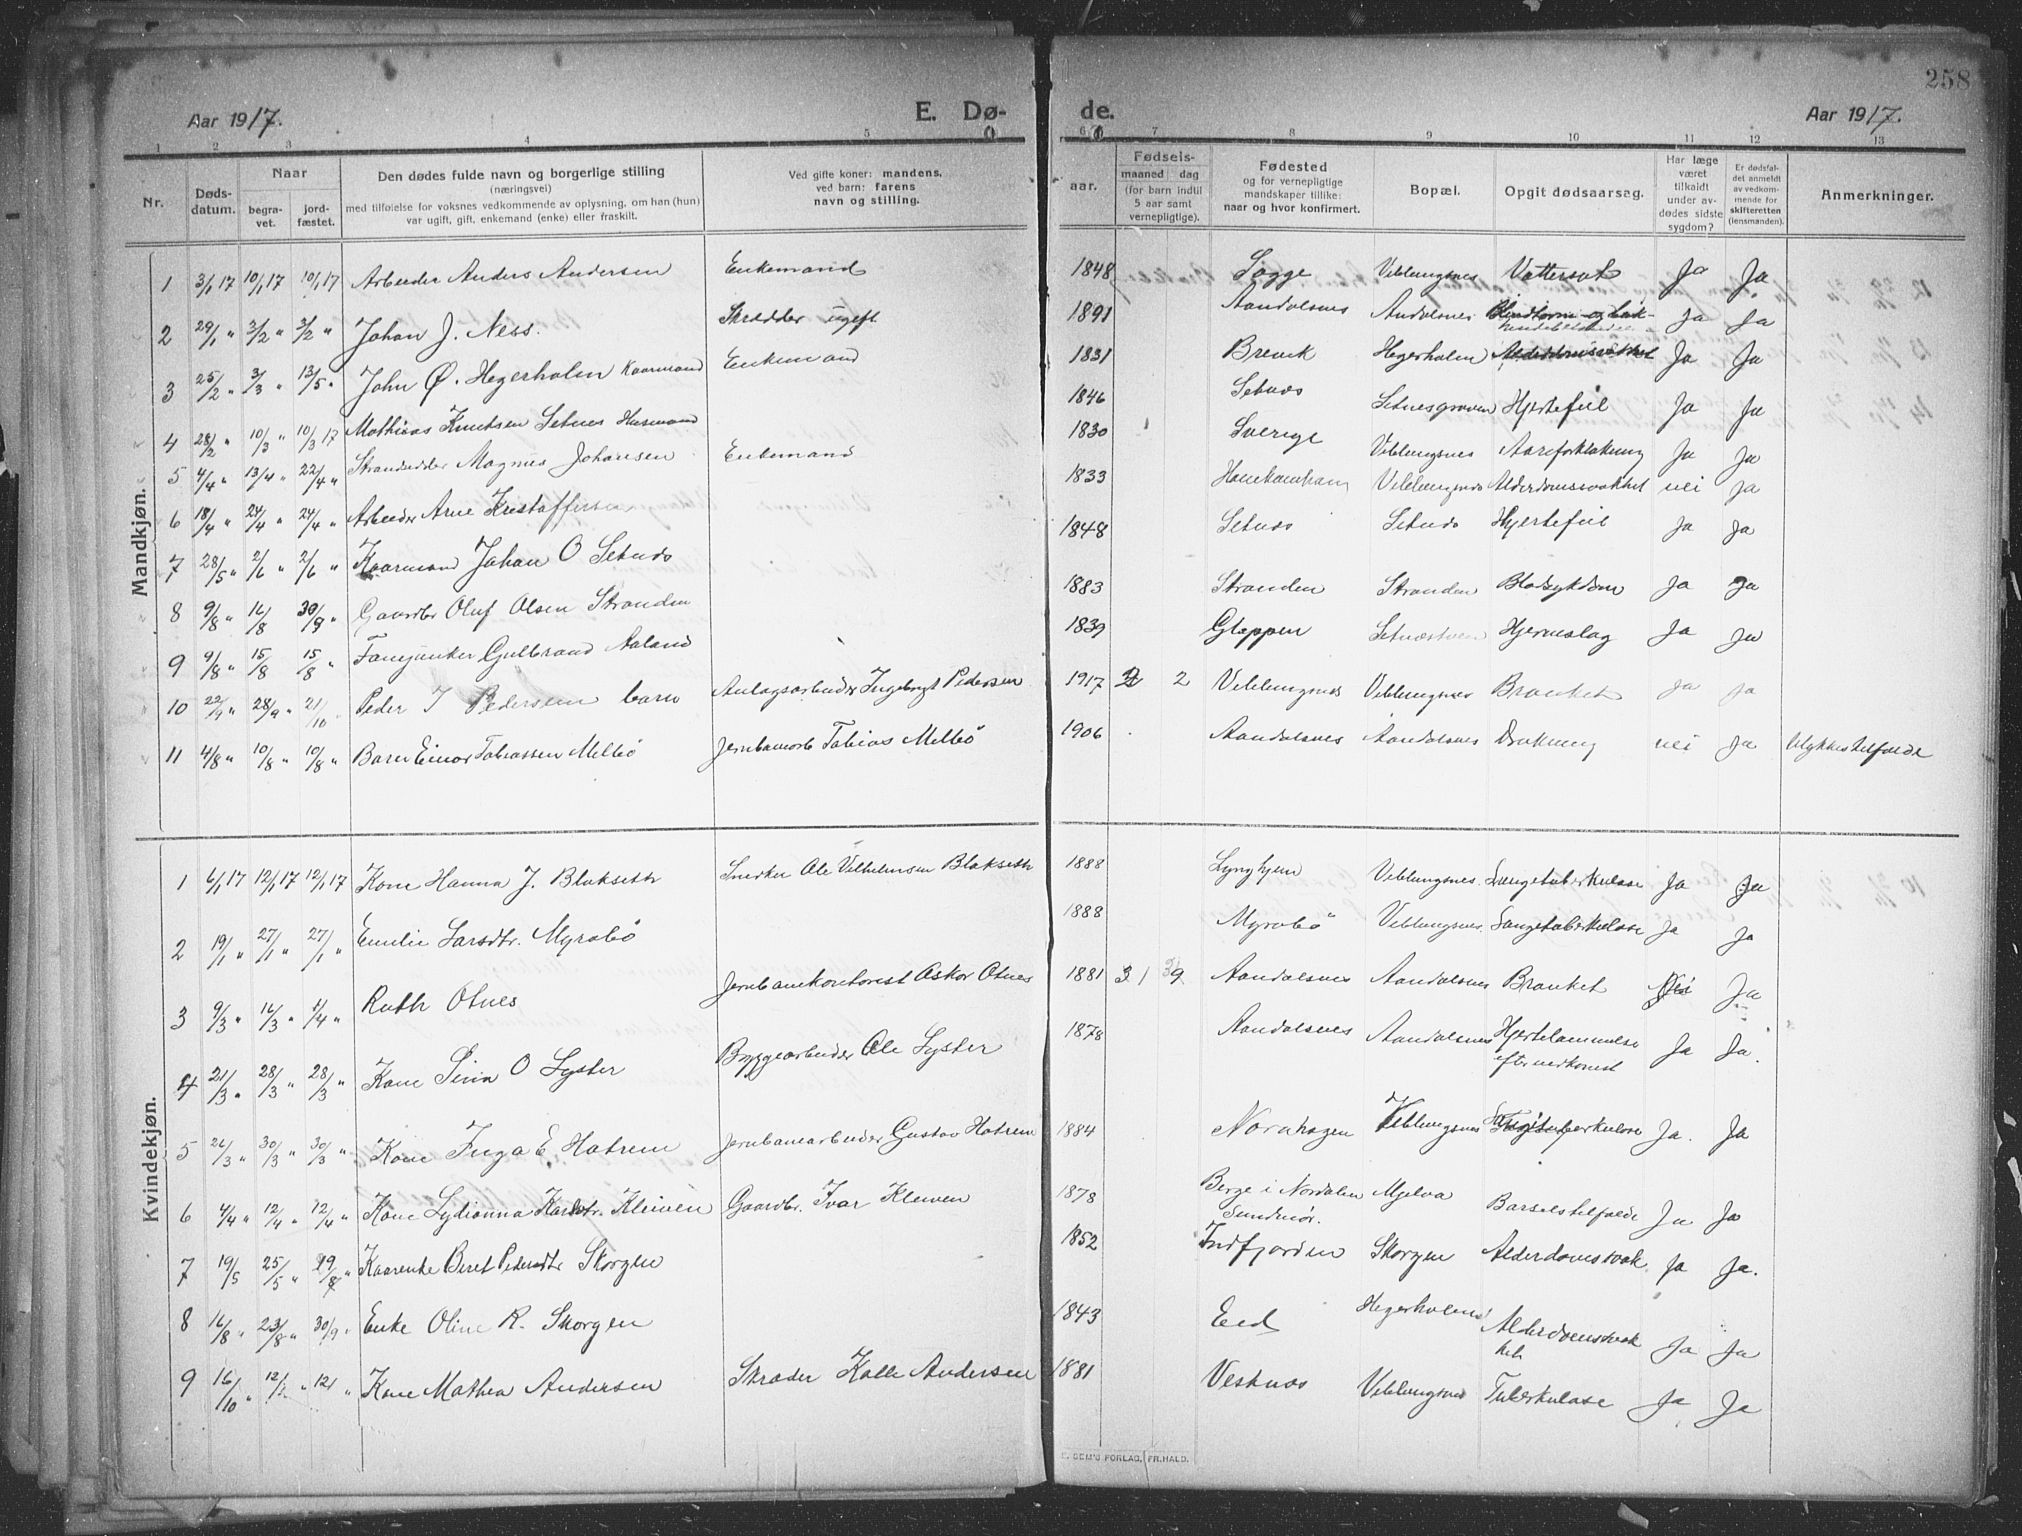 258
Aar 1917. E. Dø- de. Aar 1917.
1 2 3 4 5 6 7 8 9 10 11 12 13
Nr.
Døds-
datum.
Naar
begra-
vet.
jord-
fæstet.
Den dødes fulde navn og borgerlige stilling
(næringsvei)
med tilføielse for voksnes vedkommende av oplysning, om han (hun)
var ugift, gift, enkemand (enke) eller fraskilt.
Ved gifte koner: mandens,
ved barn: farens
navn og stilling.
aar.
Fødsels-
maaned dag
(for barn indtil
5 aar samt
vernepligtige).
Fødested
og for vernepligtige
mandskaper tillike:
naar og hvor konfirmert.
Bopæl.
Opgit dødsaarsag.
Har læge
været
tilkaldt
under av-
dødes sidste
sygdom?
Er dødsfal-
det anmeldt
av vedkom-
mende for
skifteretten
(lensmanden).
Anmerkninger.
Mandkjøn.
1 3/1 17 10/1 17 10/1 17 Arbeider Anders Andersen Enkemand 1848 Sogge Veblungsnes Vattersot Ja Ja
2 29/1 " 3/2 " 3/2 " Johan J. Ness. Skrædder ugift 1891 Aandalsnes Andalsnes Ja Ja
3 25/2 " 3/3 " 13/5 " John Ø. Hegerholm Kaarmand Enkemand 1831 Brevik Hegerholm Alderdomssvakhet Ja Ja
4 28/2 " 10/3 " 10/3 17 Mathias Knutsen Setnes Husmand 1846 Setnæs Setnesgroven Hjertefeil Ja Ja
5 4/4 " 13/4 " 22/4 " Strandsidder Magnus Johansen Enkemand 1830 Sverige Veblungsnes Aareforkalkning Ja Ja
6 18/4 " 24/4 " 24/4 " Arbeider Arne Kristoffersen 1833 Veblungsnæs Alderdomssvakhet nei Ja
7 28/5 " 2/6 " 2/6 " Kaarmand Johan O Setnæs 1848 Setnæs Setnæs Hjertefeil Ja Ja
8 9/8 " 16/8 30/9 " Gaardbr Oluf Olsen Stranden 1883 Stranden Stranden Blodsykdom Ja Ja
9 9/8 " 15/8 15/8 " Fanejunker Gulbrand Aaland 1839 Gleppen Hjerneslag Ja Ja
10 22/9 " 28/9 " 21/10 Peder I Pedersen barn Anlægsarbeider Ingebrigt Pedersen 1917 2 Veblungsnes Veblungsnes Bronket Ja Ja
11 4/8 " 10/8 " 10/8 " Barn Einar Tobiassen Melbö Jernbanearb Tobias Melbö 1906 Aandalsnes Aandalsnes Drukning nei Ja Ulykkestilfælde
Kvindekjøn.
1 6/1 17 12/1 17 12/1 17 Kone Hanna J. Blakseth Snedker Ole Vilhelmsen Blakseth 1888 Lynghjem Veblungsnes Lungetuberkulose Ja Ja
2 19/1 " 27/1 " 27/1 " Emilie Larsdtr. Myrabö 1888 Myrabö Veblungsnes Lungetuberkulose Ja Ja
3 9/3 " 16/3 " 1/4 " Ruth Otnes Jernbanekontorist Oskar Otnes 1881 31 9 Aandalsnes Aandalsnes Bronket Nei Ja
4 21/3 " 28/3 " 28/3 " Kone Sina O Lyster Byggearbeider Ole Lyster 1878 Aandalsnes Aandalsnes Hjertelammelse
efter nedkomst Ja Ja.
5 26/3 " 30/3 " 30/3 " Kone Inga E Hatrem Jernbanearbeider Gustav Hatrem 1884 Norahagen Veblungsnes Ja. Ja
6 4/4 " 12/4 " 12/4 " Kone Lydianna Karlsdtr. Kleiven Gaardbr. Ivar Kleiven 1878 Berge i Nordalen
Sundmör. Mjelva Barselstilfælde Ja Ja
7 19/5 25/5 " Kaarenke Beret Pedersdtr Skorgen 1852 Indfjorden Skorgen Alderdomssvak Ja Ja.
8 16/8 " 23/8 " 30/9 " Enke Oline R. Skorgen 1843 Eid Hegerholmen Alderdomssvak
het Ja Ja
9 16/10 " Kone Mathea Andersen Skræder Kalle Andersen 1881 Vestnæs Veblungsnes Tuberkulose Ja Ja
E. SEM'S FORLAG, FR.HALD.